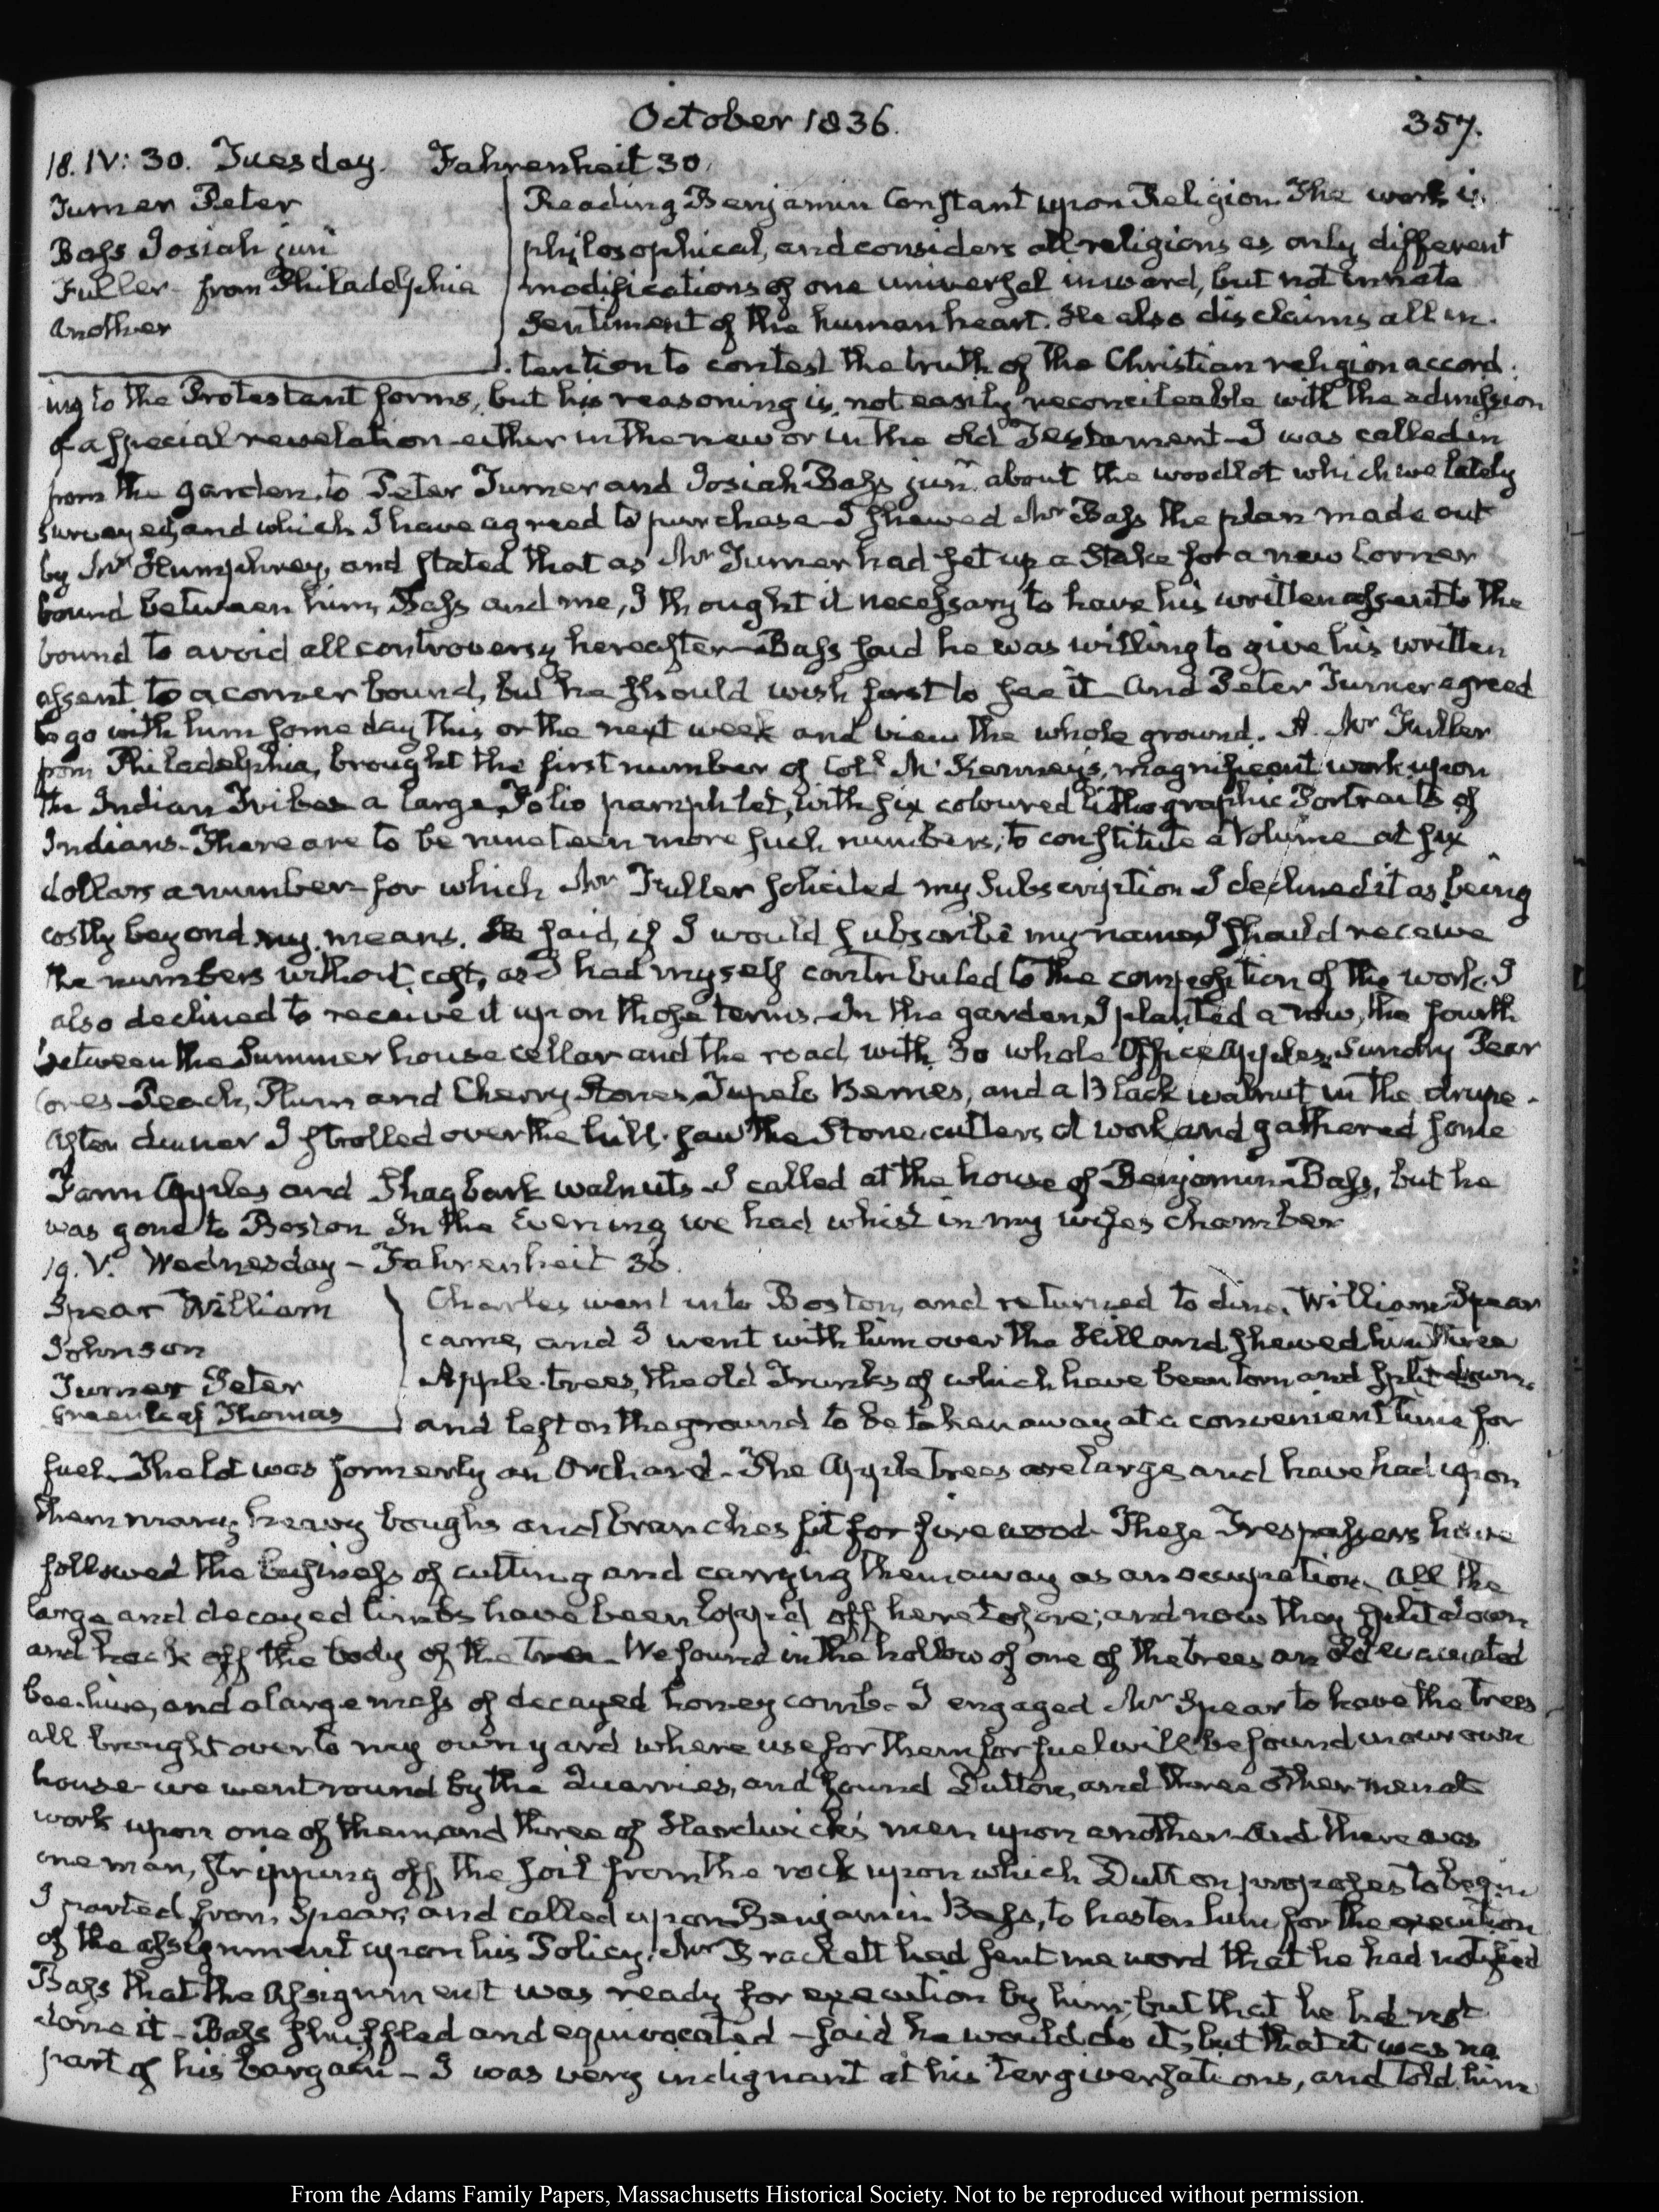 October 1836.
357.
18. IV: 30. Tuesday. Fahrenheit 30.
Turner Peter
Bass Josiah junr
Fuller - from Philadelphia
Another
Reading Benjamin Constant upon Religion. The work is
philosophical, and considers all religions as only different
modifications of one universal inward, but not innate
Sentiment of the human heart. He also disclaims all in-
-tention to contest the truth of the Christian religion accord-
ing to the Protestant forms, but his reasoning is not easily reconcileable with the admission
of a special revelation either in the new or in the old Testament - I was called in
from the garden, to Peter Turner and Josiah Bass junr about the woodlot which we lately
surveyed, and which I have agreed to purchase - I shewed Mr Bass the plan made out
by Mr Humphrey, and stated that as Mr Turner had set up a Stake for a new Corner
bound between him, Bass and me, I thought it necessary to have his written assent to the
bound to avoid all controversy hereafter - Bass said he was willing to give his written
assent to a corner bound, but he should wish first to see it - And Peter Turner agreed
to go with him some day this or the next week and view the whole ground. A Mr Fuller
from Philadelphia, brought the first number of Coll McKenney's, magnificent work upon
the Indian Tribes - a large Folio pamphlet, with six coloured lithographic Portraits of
Indians - There are to be nineteen more such numbers, to constitute a Volume at six
dollars a number - for which Mr Fuller solicited my Subscription - I declined it as being
costly beyond my means. He said, if I would subscribe my name, I should receive
the numbers without cost, as I had myself contributed to the composition of the work. I
also declined to receive it upon those terms - In the garden, I planted a row, the fourth
between the Summer house cellar and the road, with 30 whole Office Apples, Sundry Pear
Cores - Peach, Plum and Cherry Stones, Tupelo Berries, and a Black walnut in the drupe -
After dinner I strolled over the hill, saw the Stone-cutters at work, and gathered some
Farm Apples and Shagbark walnuts - I called at the house of Benjamin Bass, but he
was gone to Boston - In the Evening we had whist in my wife's chamber
19. V. Wednesday - Fahrenheit 36.
Spear William
Johnson
Turner Peter
Greenleaf Thomas
Charles went into Boston, and returned to dine. William Spear
came, and I went with him over the Hill and shewed him three
Apple-trees, the old Trunks of which have been torn and split down,
and left on the ground to be taken away at a convenient time for
fuel - The lot was formerly an Orchard - The Apple trees are large and have had upon
them many heavy boughs and branches fit for fire wood - These Trespassers have
followed the business of cutting and carrying them away as an occupation. All the
large and decayed limbs have been lopp'd off heretofore; and now they split down
and hack off the body of the tree - We found in the hollow of one of the trees an old evacuated
bee-hive, and a large mass of decayed honey comb - I engaged Mr Spear to have the trees
all brought over to my own yard where use for them for fuel will be found in our own
house - we went round by the Quarries, and found Dutton, and three other men at
work upon one of them, and three of Hardwick's men upon another - And there was
one man, stripping off the soil from the rock upon which Dutton proposes to begin
I parted from Spear, and called upon Benjamin Bass, to hasten him for the execution
of the assignment upon his Policy. Mr Brackett had sent me word that he had notified
Bass that the Assignment was ready for execution by him; but that he had not
done it - Bass shuffled and equivocated - said he would do it, but that it was no
part of his bargain - I was very indignant at his tergiversations, and told him
From the Adams Family Papers, Massachusetts Historical Society. Not to be reproduced without permission.